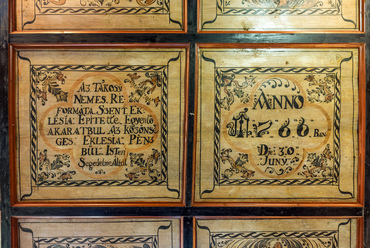 Az Tákosi
Nemes. Re
formáta Szent Ek
lésia Epitette. Egyenlö
akaratbul. Az közöns
ges. Eklesia. Pénz
bül. Isten
Segedelme Által
ANNO
1766
Die: 30
Juny